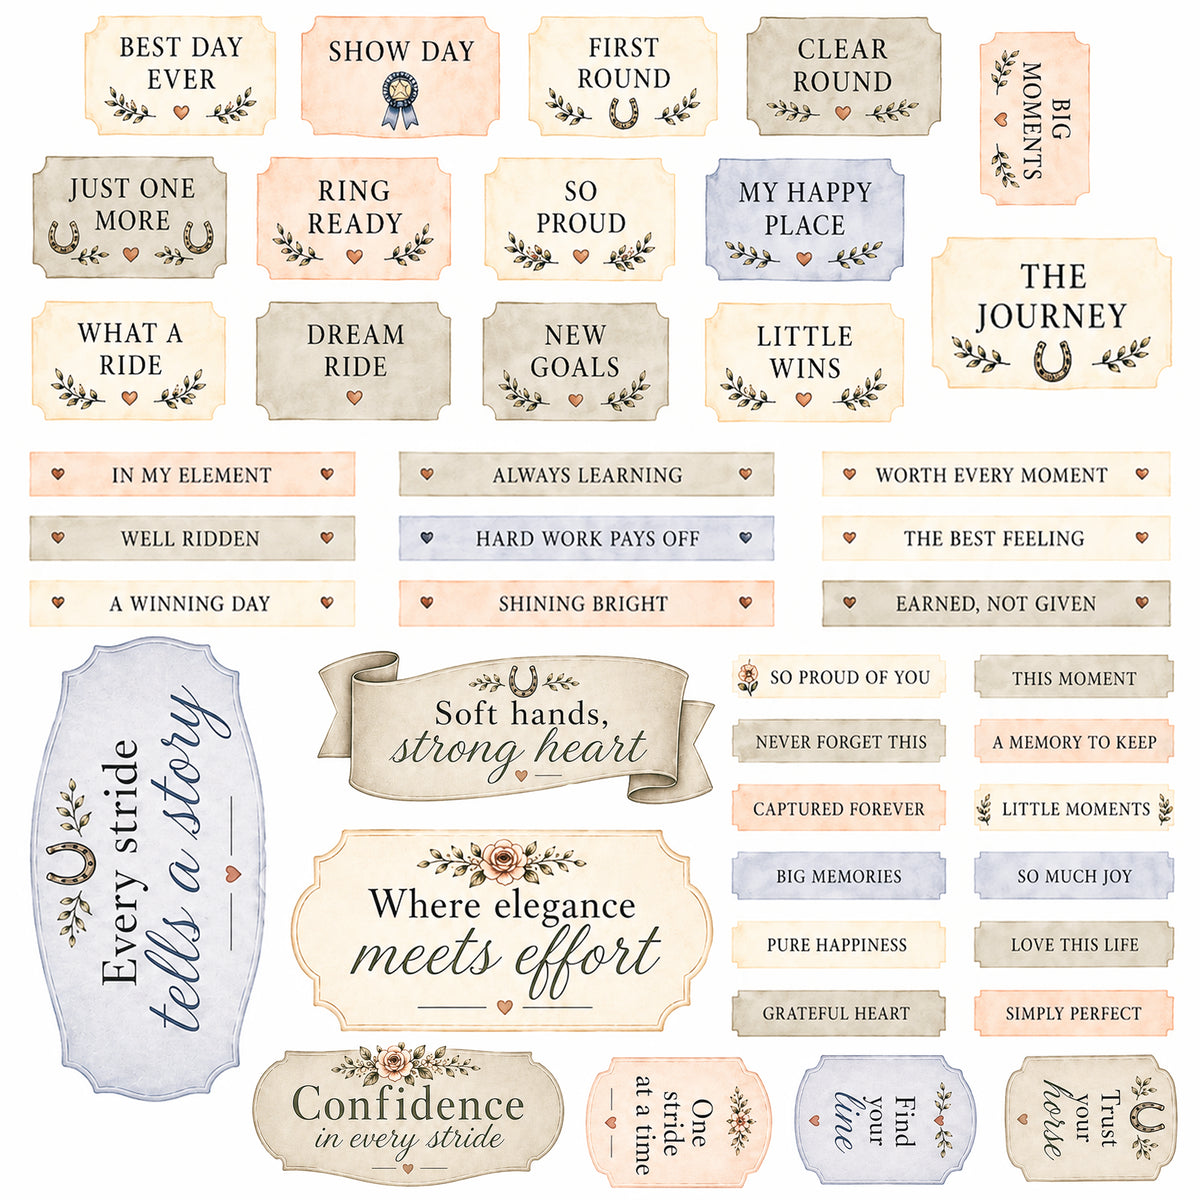 BEST DAY
EVER
SHOW DAY
FIRST
ROUND
CLEAR
ROUND
BIG
MOMENTS
JUST ONE
MORE
RING
READY
SO
PROUD
MY HAPPY
PLACE
THE
JOURNEY
WHAT A
RIDE
DREAM
RIDE
NEW
GOALS
LITTLE
WINS
IN MY ELEMENT
ALWAYS LEARNING
WORTH EVERY MOMENT
WELL RIDDEN
HARD WORK PAYS OFF
THE BEST FEELING
A WINNING DAY
SHINING BRIGHT
EARNED, NOT GIVEN
Every stride
tells a story
Soft hands,
strong heart
Where elegance
meets effort
SO PROUD OF YOU
THIS MOMENT
NEVER FORGET THIS
A MEMORY TO KEEP
CAPTURED FOREVER
LITTLE MOMENTS
BIG MEMORIES
SO MUCH JOY
PURE HAPPINESS
LOVE THIS LIFE
GRATEFUL HEART
SIMPLY PERFECT
Confidence
in every stride
One
stride
at a time
Find
your
line
Trust
your
horse